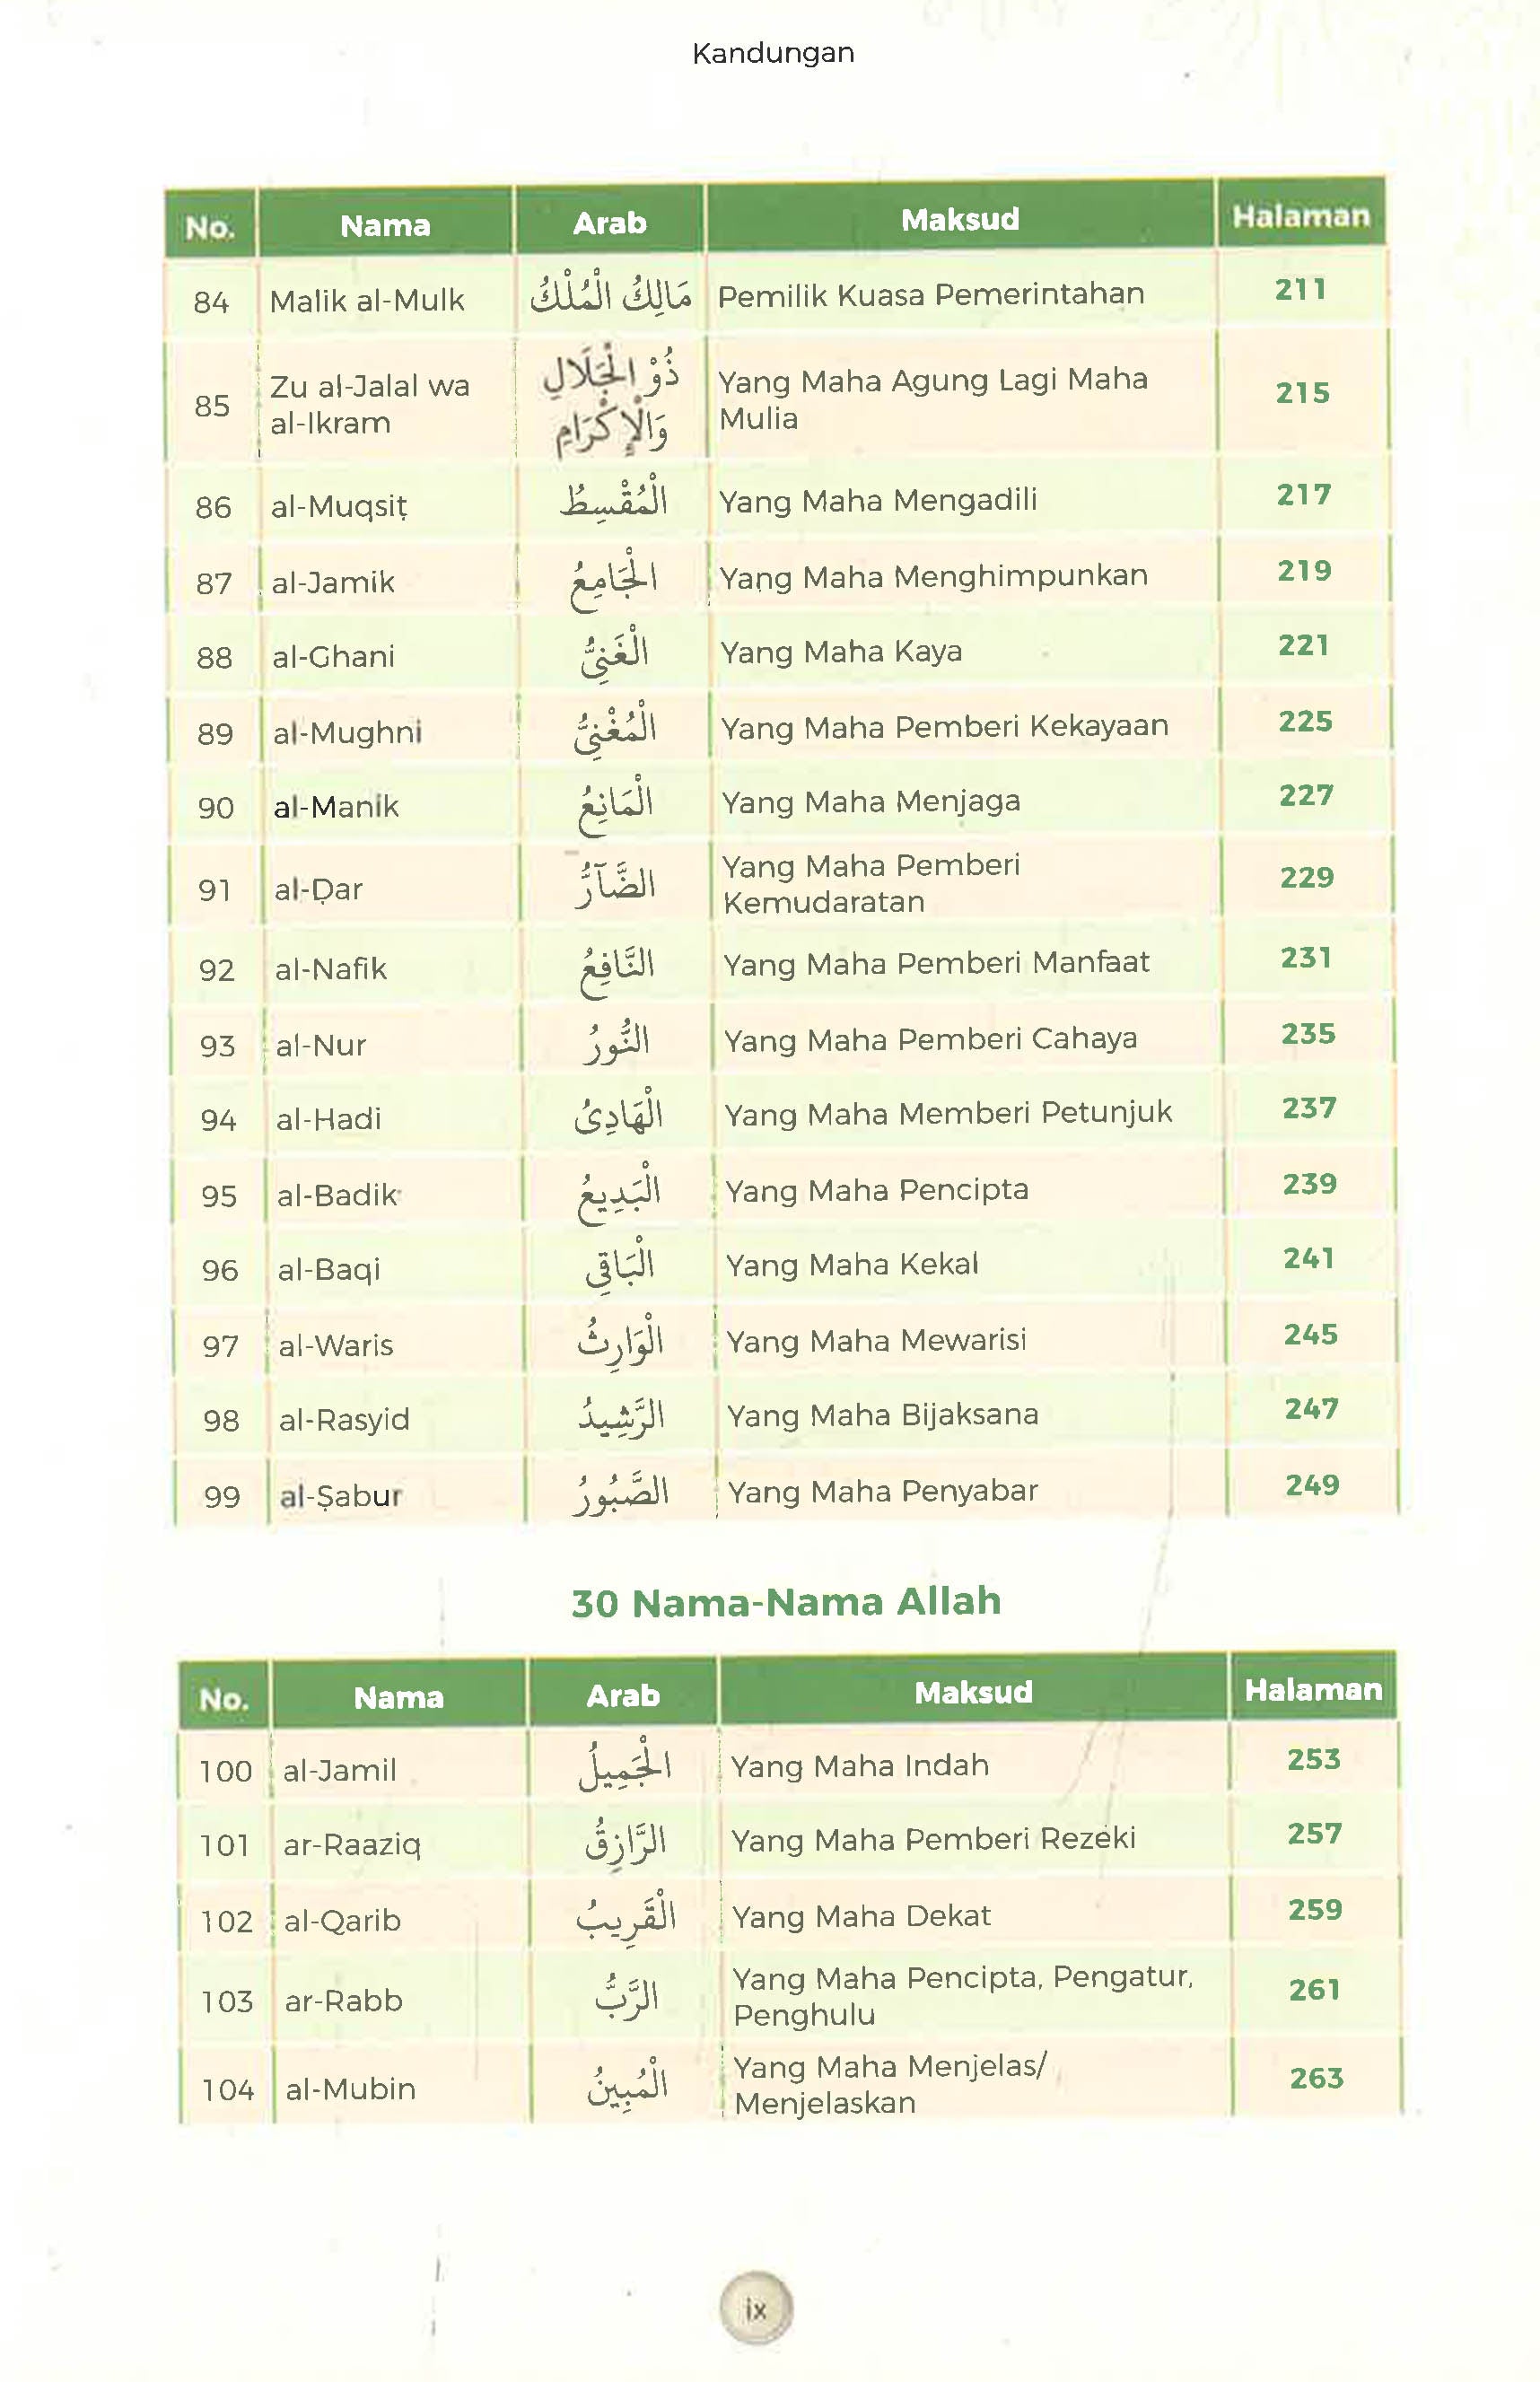 Kandungan
No. Nama Arab Maksud Halaman
84 Malik al-Mulk مَالِكُ الْمُلْكُ Pemilik Kuasa Pemerintahan 211
85 Zu al-Jalal wa al-Ikram ذُوْ الْجَلَالِ وَالْإِكْرَامِ Yang Maha Agung Lagi Maha Mulia 215
86 al-Muqsiṭ الْمُقْسِطُ Yang Maha Mengadili 217
87 al-Jamik الْجَامِعُ Yang Maha Menghimpunkan 219
88 al-Ghani الْغَنِيُّ Yang Maha Kaya 221
89 al-Mughni الْمُغْنِيُّ Yang Maha Pemberi Kekayaan 225
90 al-Manik الْمَانِعُ Yang Maha Menjaga 227
91 al-Ḍar الضَّآرُّ Yang Maha Pemberi Kemudaratan 229
92 al-Nafik النَّافِعُ Yang Maha Pemberi Manfaat 231
93 al-Nur النُّورُ Yang Maha Pemberi Cahaya 235
94 al-Hadi الْهَادِىُ Yang Maha Memberi Petunjuk 237
95 al-Badik الْبَدِيعُ Yang Maha Pencipta 239
96 al-Baqi الْبَاقِى Yang Maha Kekal 241
97 al-Waris الْوَارِثُ Yang Maha Mewarisi 245
98 al-Rasyid الرَّشِيدُ Yang Maha Bijaksana 247
99 al-Ṣabur الصَّبُورُ Yang Maha Penyabar 249
30 Nama-Nama Allah
No. Nama Arab Maksud Halaman
100 al-Jamil الْجَمِيلُ Yang Maha Indah 253
101 ar-Raaziq الرَّازِقُ Yang Maha Pemberi Rezeki 257
102 al-Qarib الْقَرِيبُ Yang Maha Dekat 259
103 ar-Rabb الرَّبُّ Yang Maha Pencipta, Pengatur, Penghulu 261
104 al-Mubin الْمُبِينُ Yang Maha Menjelas/ Menjelaskan 263
ix